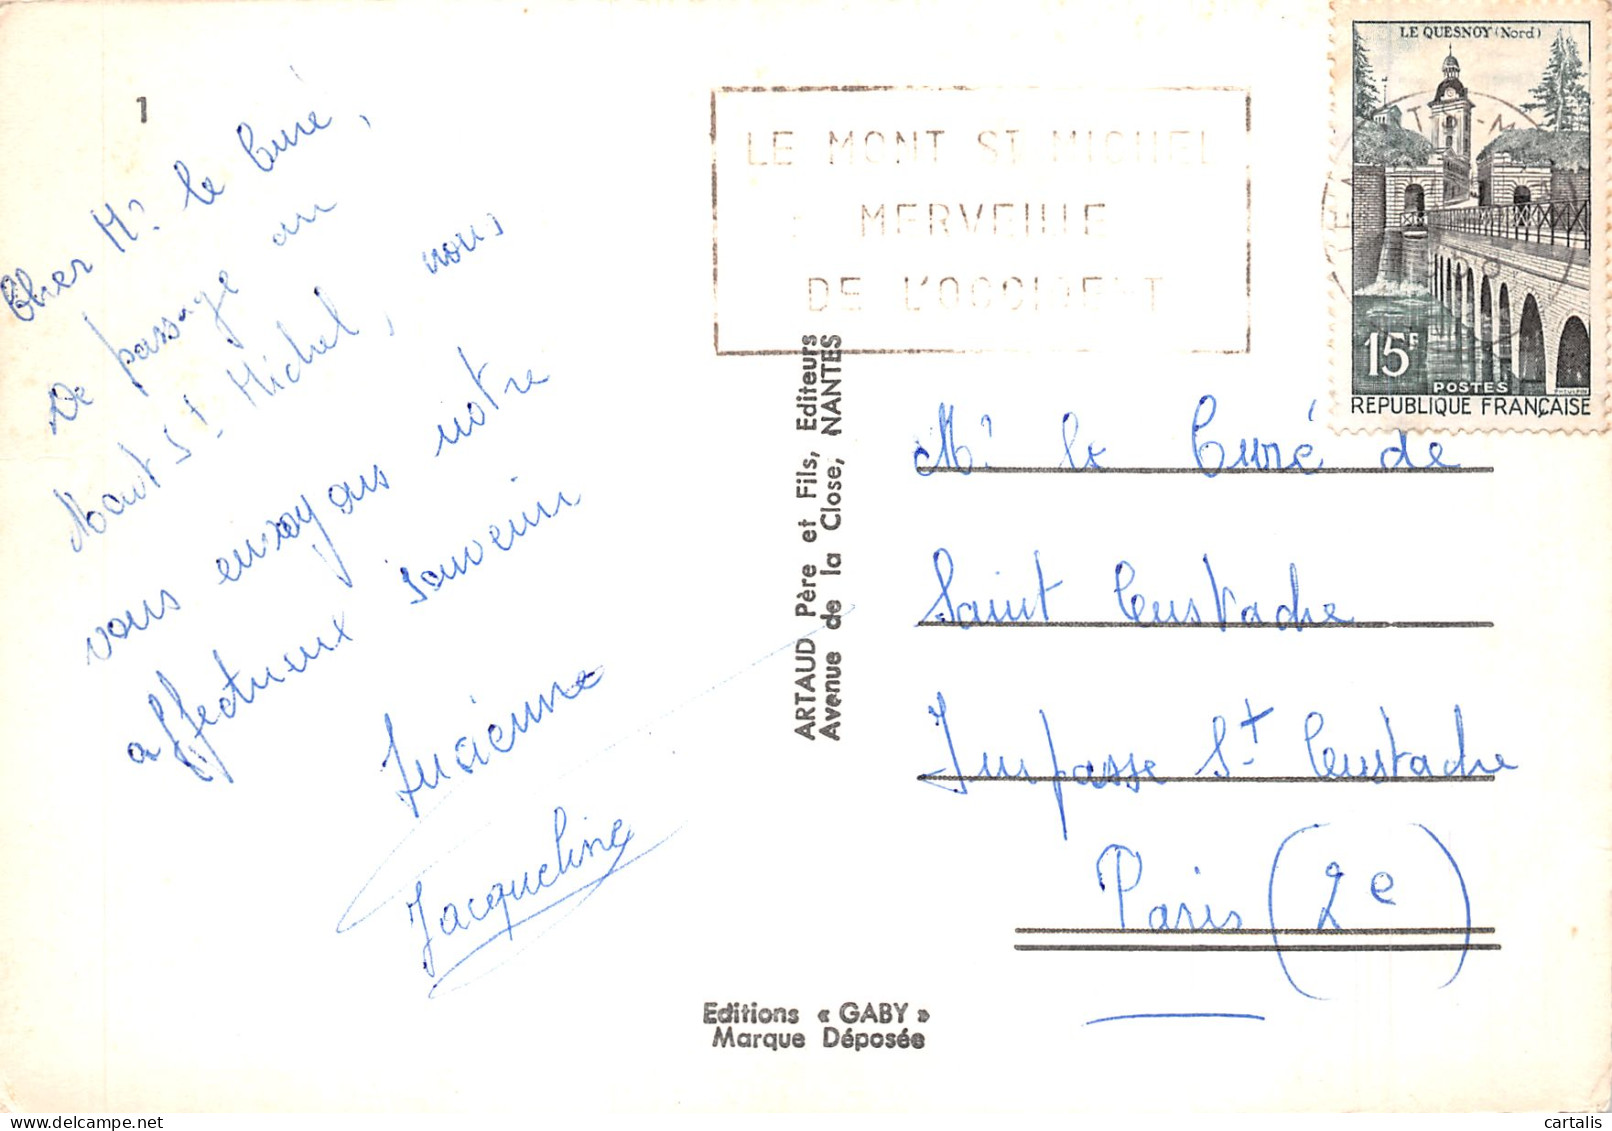 1
Cher Mr le Curé,
De passage au
Mont St Michel, nous
vous envoyons notre
affectueux souvenir
Lucienne
Jacqueline
ARTAUD Père et Fils, Editeurs
Avenue de la Close, NANTES
Editions « GABY »
Marque Déposée
LE MONT ST MICHEL
MERVEILLE
DE L'OCCIDENT
LE QUESNOY (Nord)
15F
POSTES
REPUBLIQUE FRANÇAISE
Mr le Curé de
Saint Eustache
Impasse St Eustache
Paris (2e)
cartalis